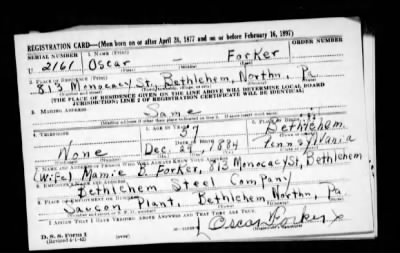 REGISTRATION CARD—(Men born on or after April 28, 1877 and on or before February 16, 1897)
SERIAL NUMBER 1. NAME (Print) ORDER NUMBER
U 2161 Oscar — Forker
(First) (Middle) (Last)
2. PLACE OF RESIDENCE (Print)
813 Monocacy St, Bethlehem, Northn, Pa
[THE PLACE OF RESIDENCE GIVEN ON THE LINE ABOVE WILL DETERMINE LOCAL BOARD
JURISDICTION; LINE 2 OF REGISTRATION CERTIFICATE WILL BE IDENTICAL]
3. MAILING ADDRESS
Same
4. TELEPHONE 5. AGE IN YEARS 6. PLACE OF BIRTH
57 Bethlehem
None Dec. 1884 Pennsylvania
7. NAME AND ADDRESS OF PERSON WHO WILL ALWAYS KNOW YOUR ADDRESS
(Wife) Mamie B. Forker, 813 Monocacy St, Bethlehem
8. EMPLOYER'S NAME AND ADDRESS
Bethlehem Steel Company
9. PLACE OF EMPLOYMENT OR BUSINESS
Saucon Plant, Bethlehem Northn, Pa.
I AFFIRM THAT I HAVE VERIFIED ABOVE ANSWERS AND THAT THEY ARE TRUE.
D. S. S. Form 1 Oscar Forker x
(Revised 4-1-42)